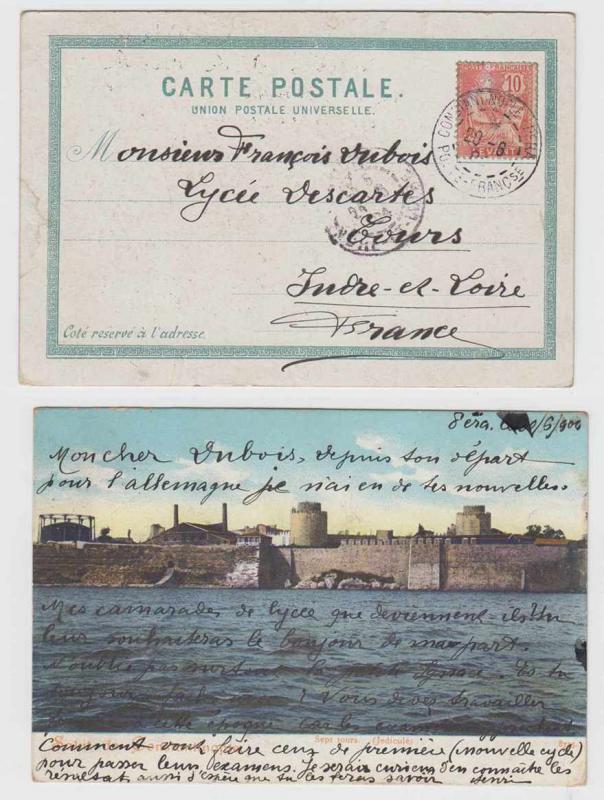 CARTE POSTALE.
UNION POSTALE UNIVERSELLE.
10
Monsieur François Dubois
Lycée Descartes
Tours
Indre-et-Loire
France
Coté reservé à l'adresse.
Péra /6/900
Mon cher Dubois, depuis ton départ
pour l'allemagne je n'ai eu de tes nouvelles.
Mes camarades de lycée que deviennent ils? Tu
leur souhaiteras le bonjour de ma part.
N'oublie pas surtout Es tu
toujours ? Vous devez travailler
cette époque car le
Sept tours. (Jedicule)
Comment vont faire ceux de première (nouvelle cycle)
pour passer leurs examens. Je serais curieux d'en connaître les
résultats aussi j'espère que tu les feras savoir Henri